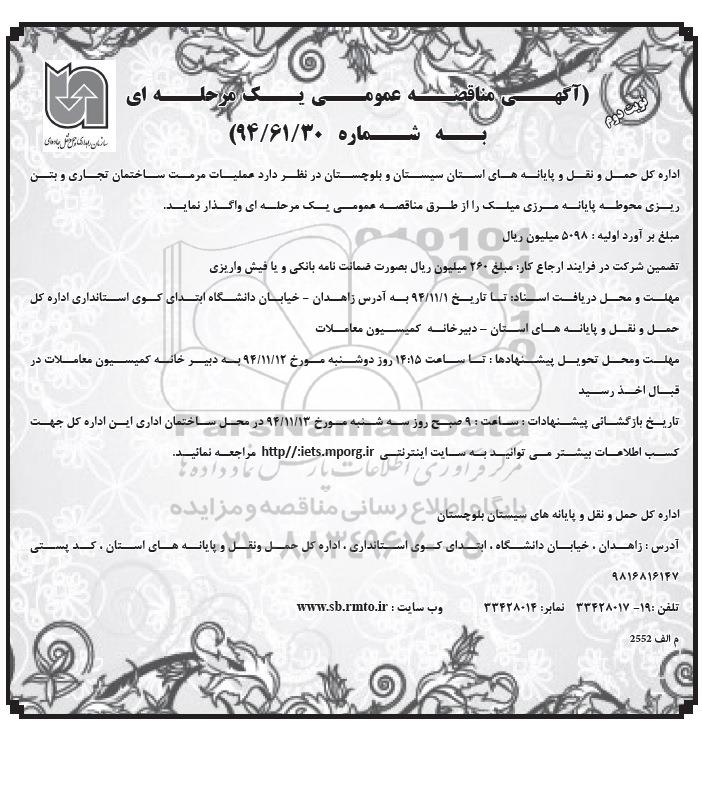 (آگهی مناقصه عمومی یک مرحله ای
به شماره ۹۴/۶۱/۳۰)
نوبت دوم
سازمان راهداری و حمل و نقل جاده‌ای
اداره کل حمل و نقل و پایانه های استان سیستان و بلوچستان در نظر دارد عملیات مرمت ساختمان تجاری و بتن
ریزی محوطه پایانه مرزی میلک را از طرق مناقصه عمومی یک مرحله ای واگذار نماید.
مبلغ بر آورد اولیه : ۵۰۹۸ میلیون ریال
تضمین شرکت در فرایند ارجاع کار: مبلغ ۲۶۰ میلیون ریال بصورت ضمانت نامه بانکی و یا فیش واریزی
مهلت و محل دریافت اسناد: تا تاریخ ۹۴/۱۱/۱ به آدرس زاهدان - خیابان دانشگاه ابتدای کوی استانداری اداره کل
حمل و نقل و پایانه های استان - دبیرخانه کمیسیون معاملات
مهلت ومحل تحویل پیشنهادها : تا ساعت ۱۴:۱۵ روز دوشنبه مورخ ۹۴/۱۱/۱۲ به دبیر خانه کمیسیون معاملات در
قبال اخذ رسید
تاریخ بازگشائی پیشنهادات : ساعت : ۹ صبح روز سه شنبه مورخ ۹۴/۱۱/۱۳ در محل ساختمان اداری این اداره کل جهت
کسب اطلاعات بیشتر می توانید به سایت اینترنتی http//:iets.mporg.ir مراجعه نمائید.
ParsNamadData
مرکز فرآوری اطلاعات پارس نماد داده ها
پایگاه اطلاع رسانی مناقصه و مزایده
۰۲۱-۸۸۳۴۹۶۷۰-۵
اداره کل حمل و نقل و پایانه های سیستان بلوچستان
آدرس : زاهدان ، خیابان دانشگاه ، ابتدای کوی استانداری ، اداره کل حمل ونقل و پایانه های استان ، کد پستی
۹۸۱۶۸۱۶۱۴۷
تلفن :۱۹- ۳۳۴۲۸۰۱۷ نمابر: ۳۳۴۲۸۰۱۴ وب سایت : www.sb.rmto.ir
م الف 2552